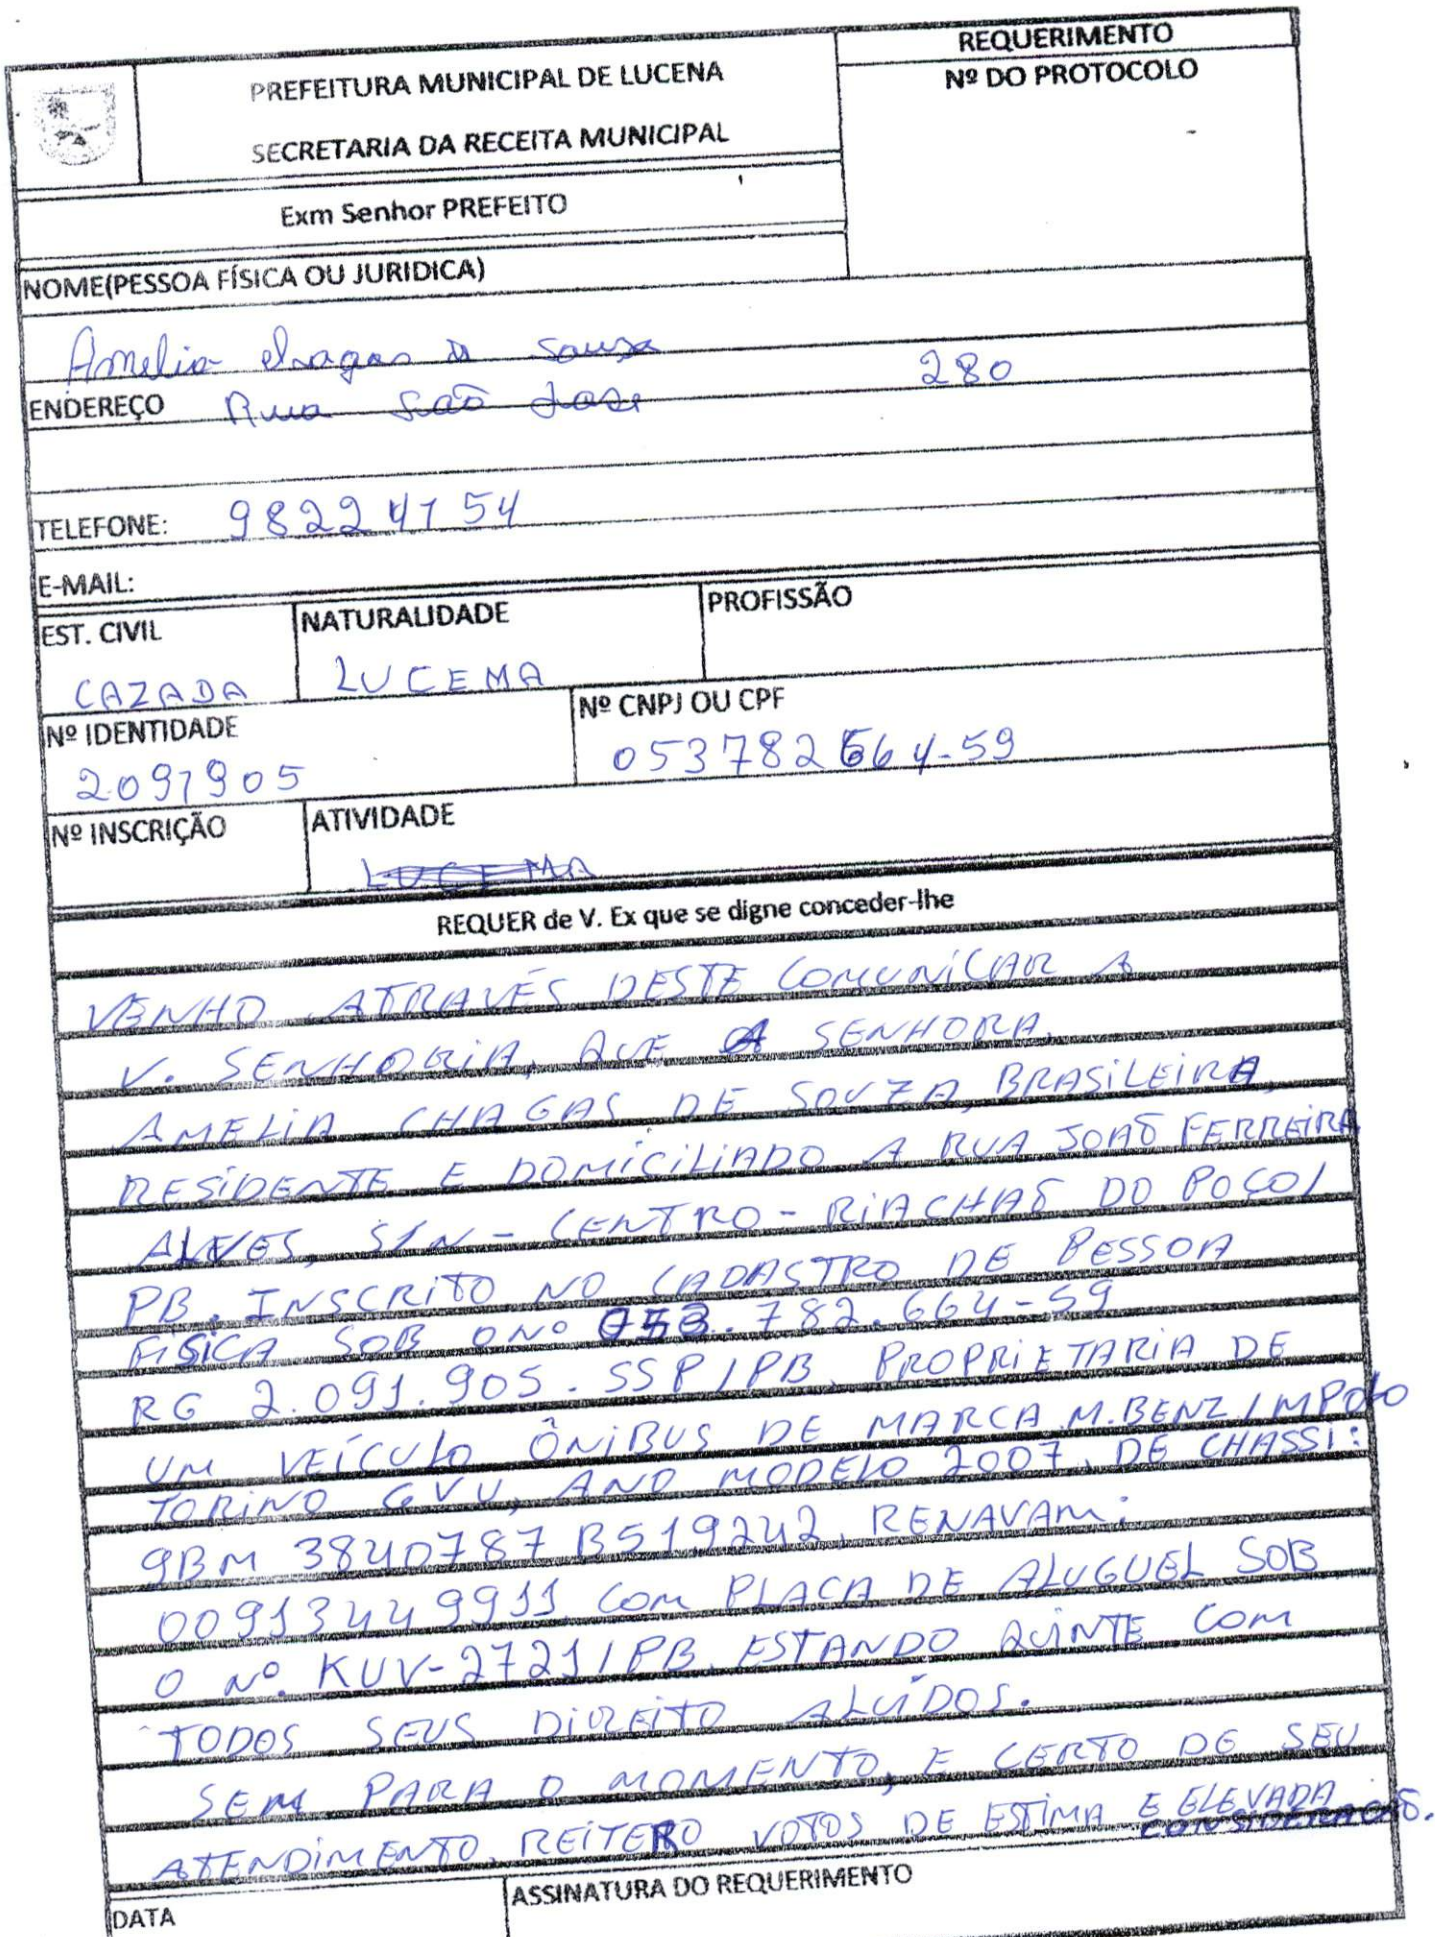 REQUERIMENTO
PREFEITURA MUNICIPAL DE LUCENA
Nº DO PROTOCOLO
SECRETARIA DA RECEITA MUNICIPAL
Exm Senhor PREFEITO
NOME(PESSOA FÍSICA OU JURIDICA)
Amelia Chagas de Souza
ENDEREÇO Rua Saõ Jose 280
TELEFONE: 98224154
E-MAIL:
EST. CIVIL NATURALIDADE PROFISSÃO
CAZADA LUCEMA
Nº IDENTIDADE Nº CNPJ OU CPF
2091905 053782664-59
Nº INSCRIÇÃO ATIVIDADE
LUCEMA
REQUER de V. Ex que se digne conceder-lhe
VENHO ATRAVÉS DESTE COMUNICAR A
V. SENHORIA, QUE A SENHORA,
AMELIA CHAGAS DE SOUZA, BRASILEIRA,
RESIDENTE E DOMICILIADO A RUA JOAÕ FERREIRA
ALVES, S/N - CENTRO - RIACHAÕ DO POÇO/
PB. INSCRITO NO CADASTRO DE PESSOA
FISICA SOB O Nº 053.782.664-59
RG 2.091.905. SSP/PB, PROPRIETARIA DE
UM VEÍCULO ÔNIBUS DE MARCA M.BENZ/MPOLO
TORINO GVU, ANO MODELO 2007, DE CHASSI:
9BM 3840787 B519242, RENAVAM:
00913449911 COM PLACA DE ALUGUEL SOB
O Nº. KUV-2721/PB, ESTANDO QUINTE COM
TODOS SEUS DIREITO ALUÍDOS.
SEM PARA O MOMENTO, E CERTO DE SEU
ATENDIMENTO, REITERO VOTOS DE ESTIMA E ELEVADA
CONSIDERACAÕ.
DATA ASSINATURA DO REQUERIMENTO